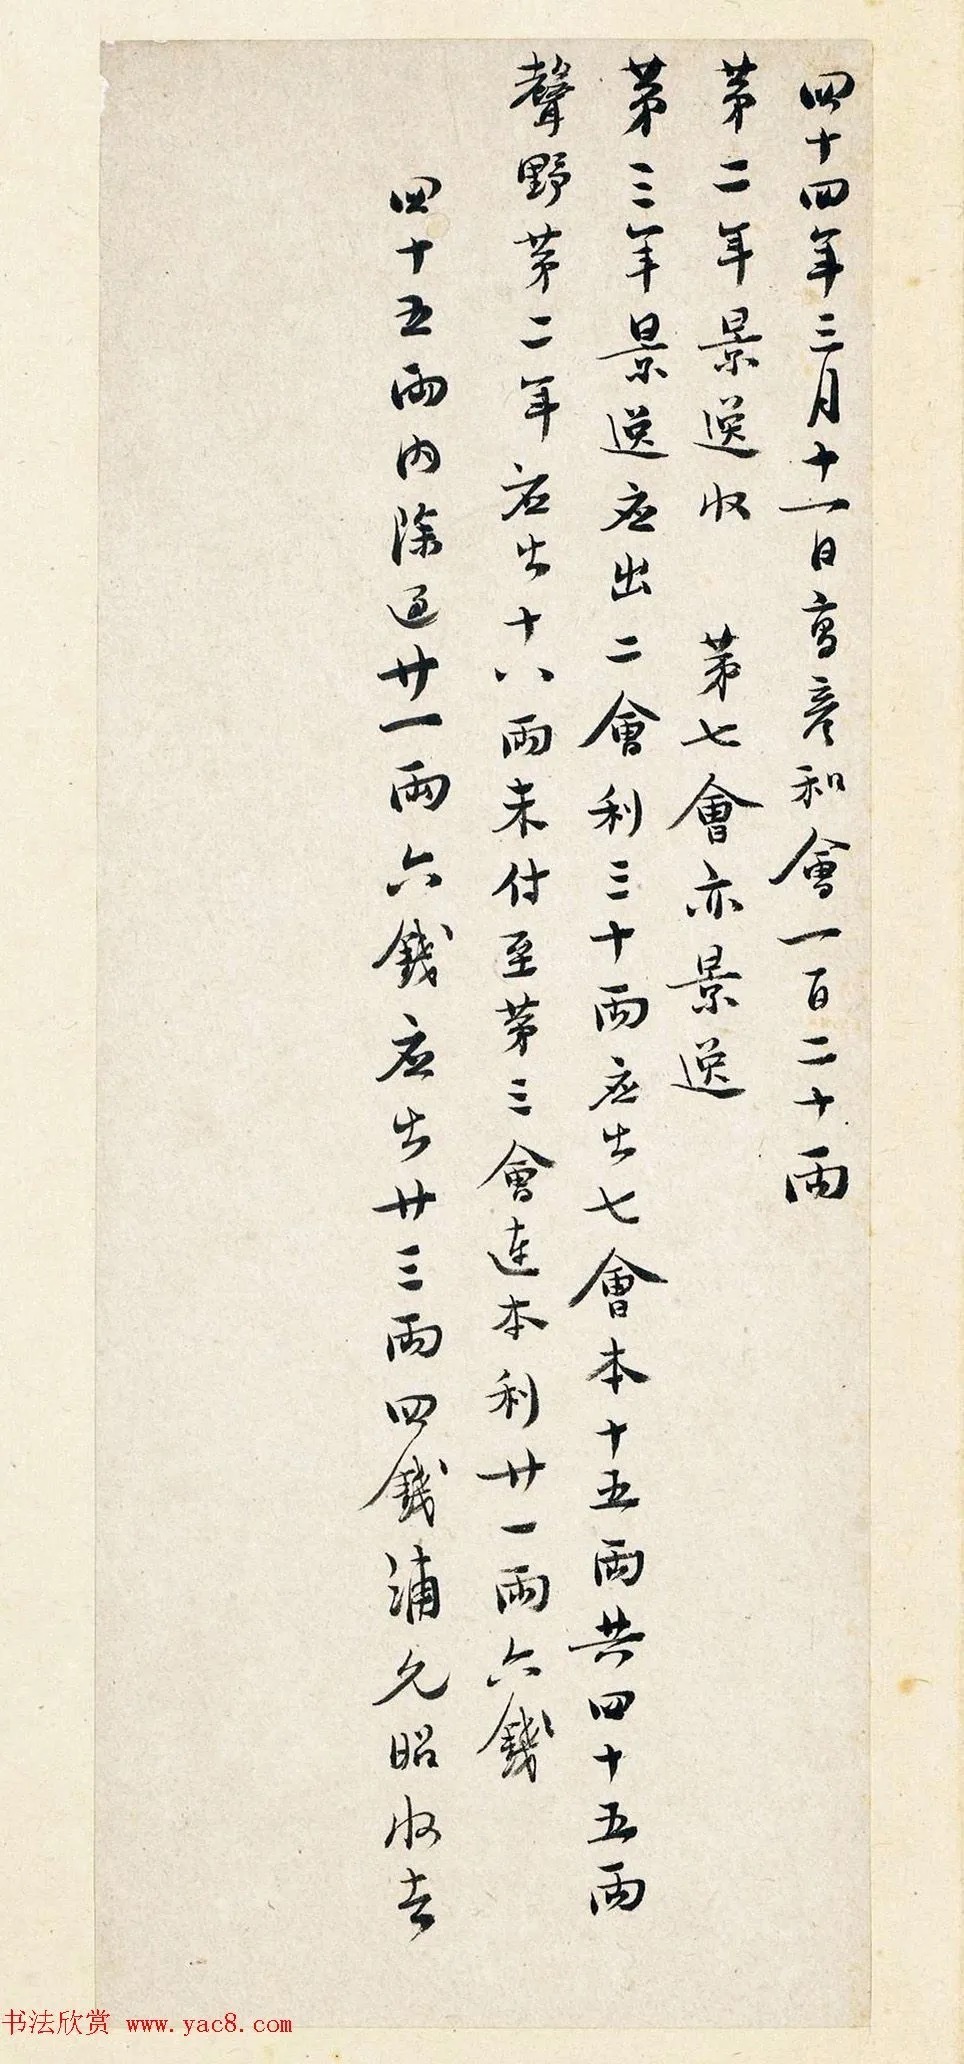 四十四年三月十一日高彦和會一百二十兩
第二年景逸收 第七會亦景逸
第三年景逸应出二會利三十兩应出七會本十五兩共四十五兩
聲野第二年应出十八兩未付至第三會連本利廿一兩六錢
四十五兩內除過廿一兩六錢应出廿三兩四錢浦允昭收去
书法欣赏 www.yac8.com